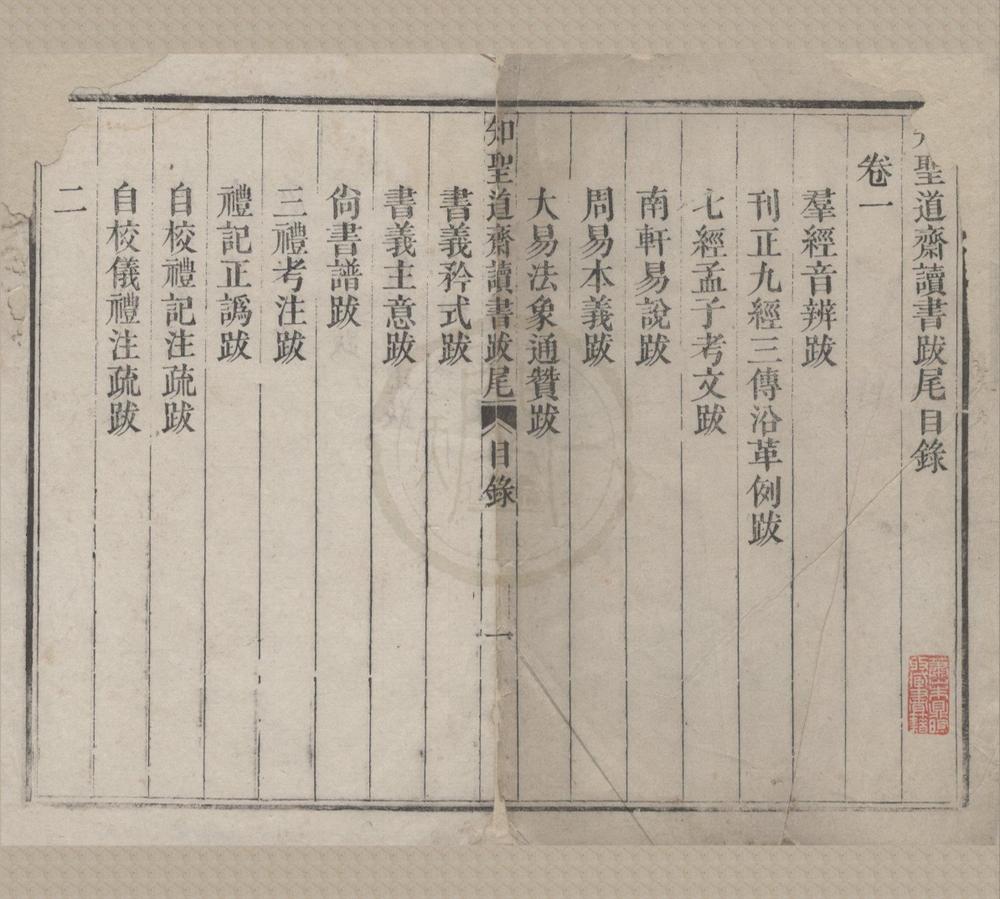 知聖道齋讀書跋尾目錄
卷一
羣經音辨跋
刊正九經三傳沿革例跋
七經孟子考文跋
南軒易說跋
周易本義跋
大易法象通贊跋
知聖道齋讀書跋尾 目錄 一
書義矜式跋
書義主意跋
尙書譜跋
三禮考注跋
禮記正譌跋
自校禮記注疏跋
自校儀禮注疏跋
二